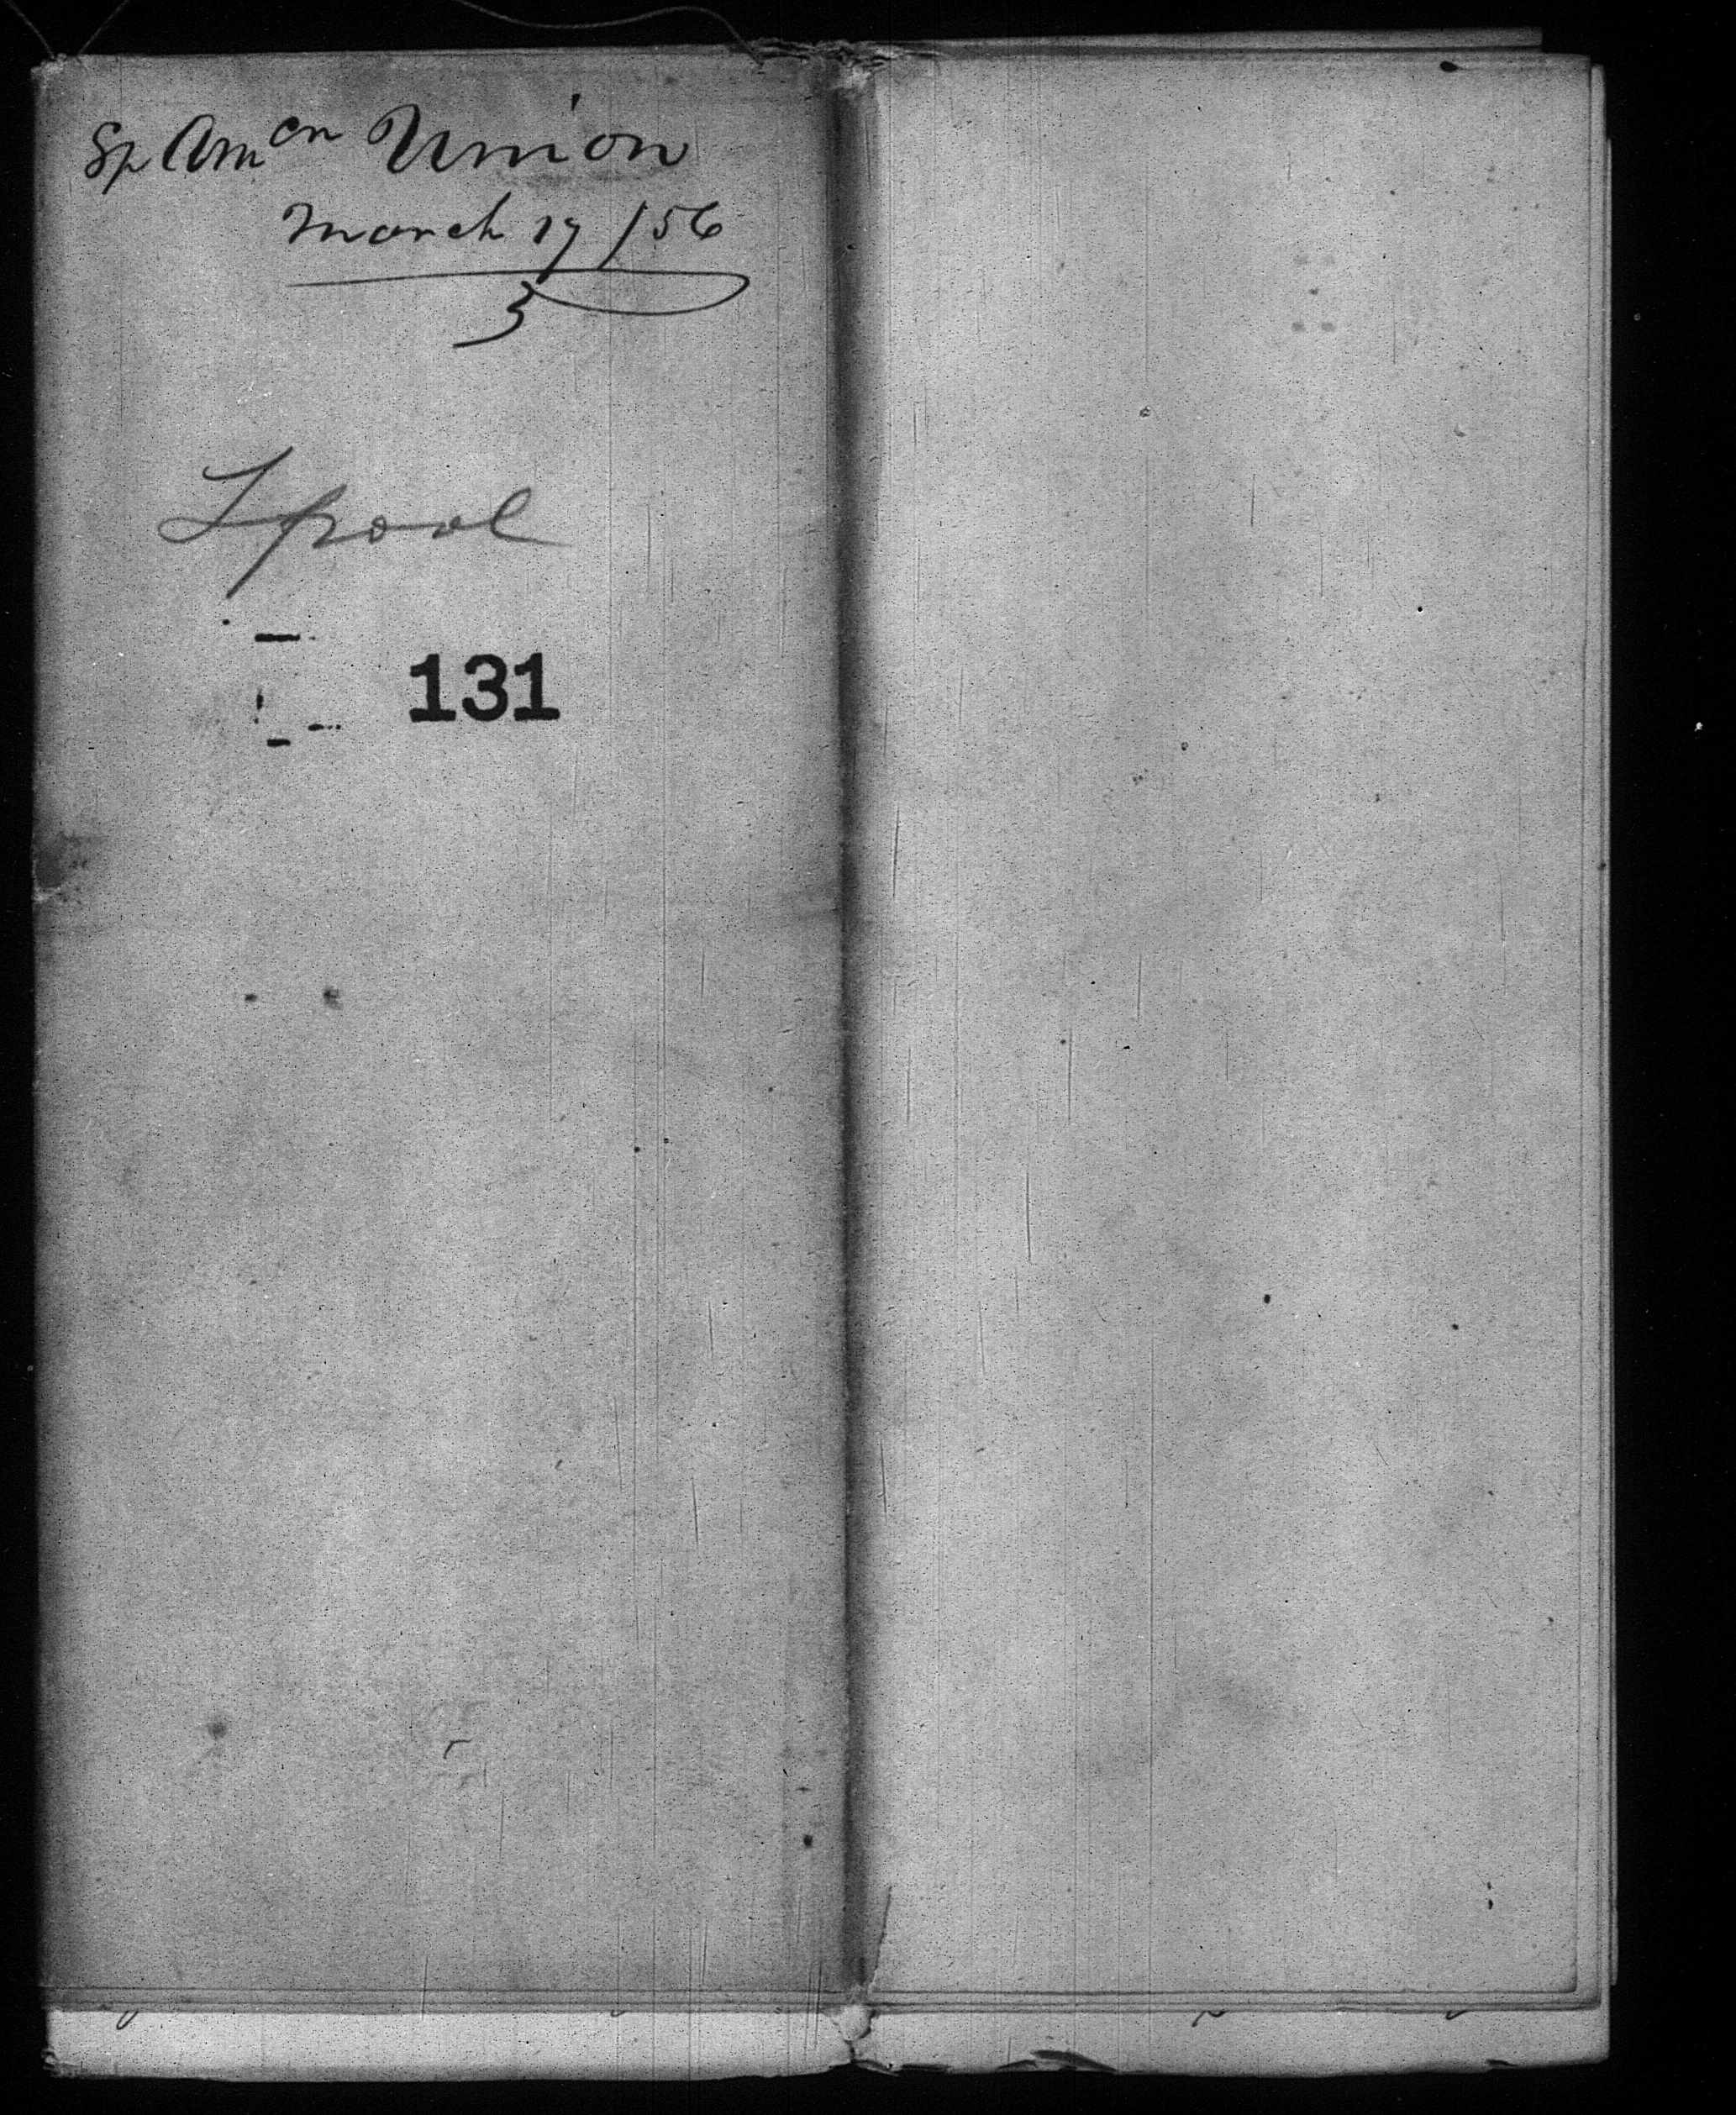 Sp Amcn Union
March 17 /56
3
Lpool
131